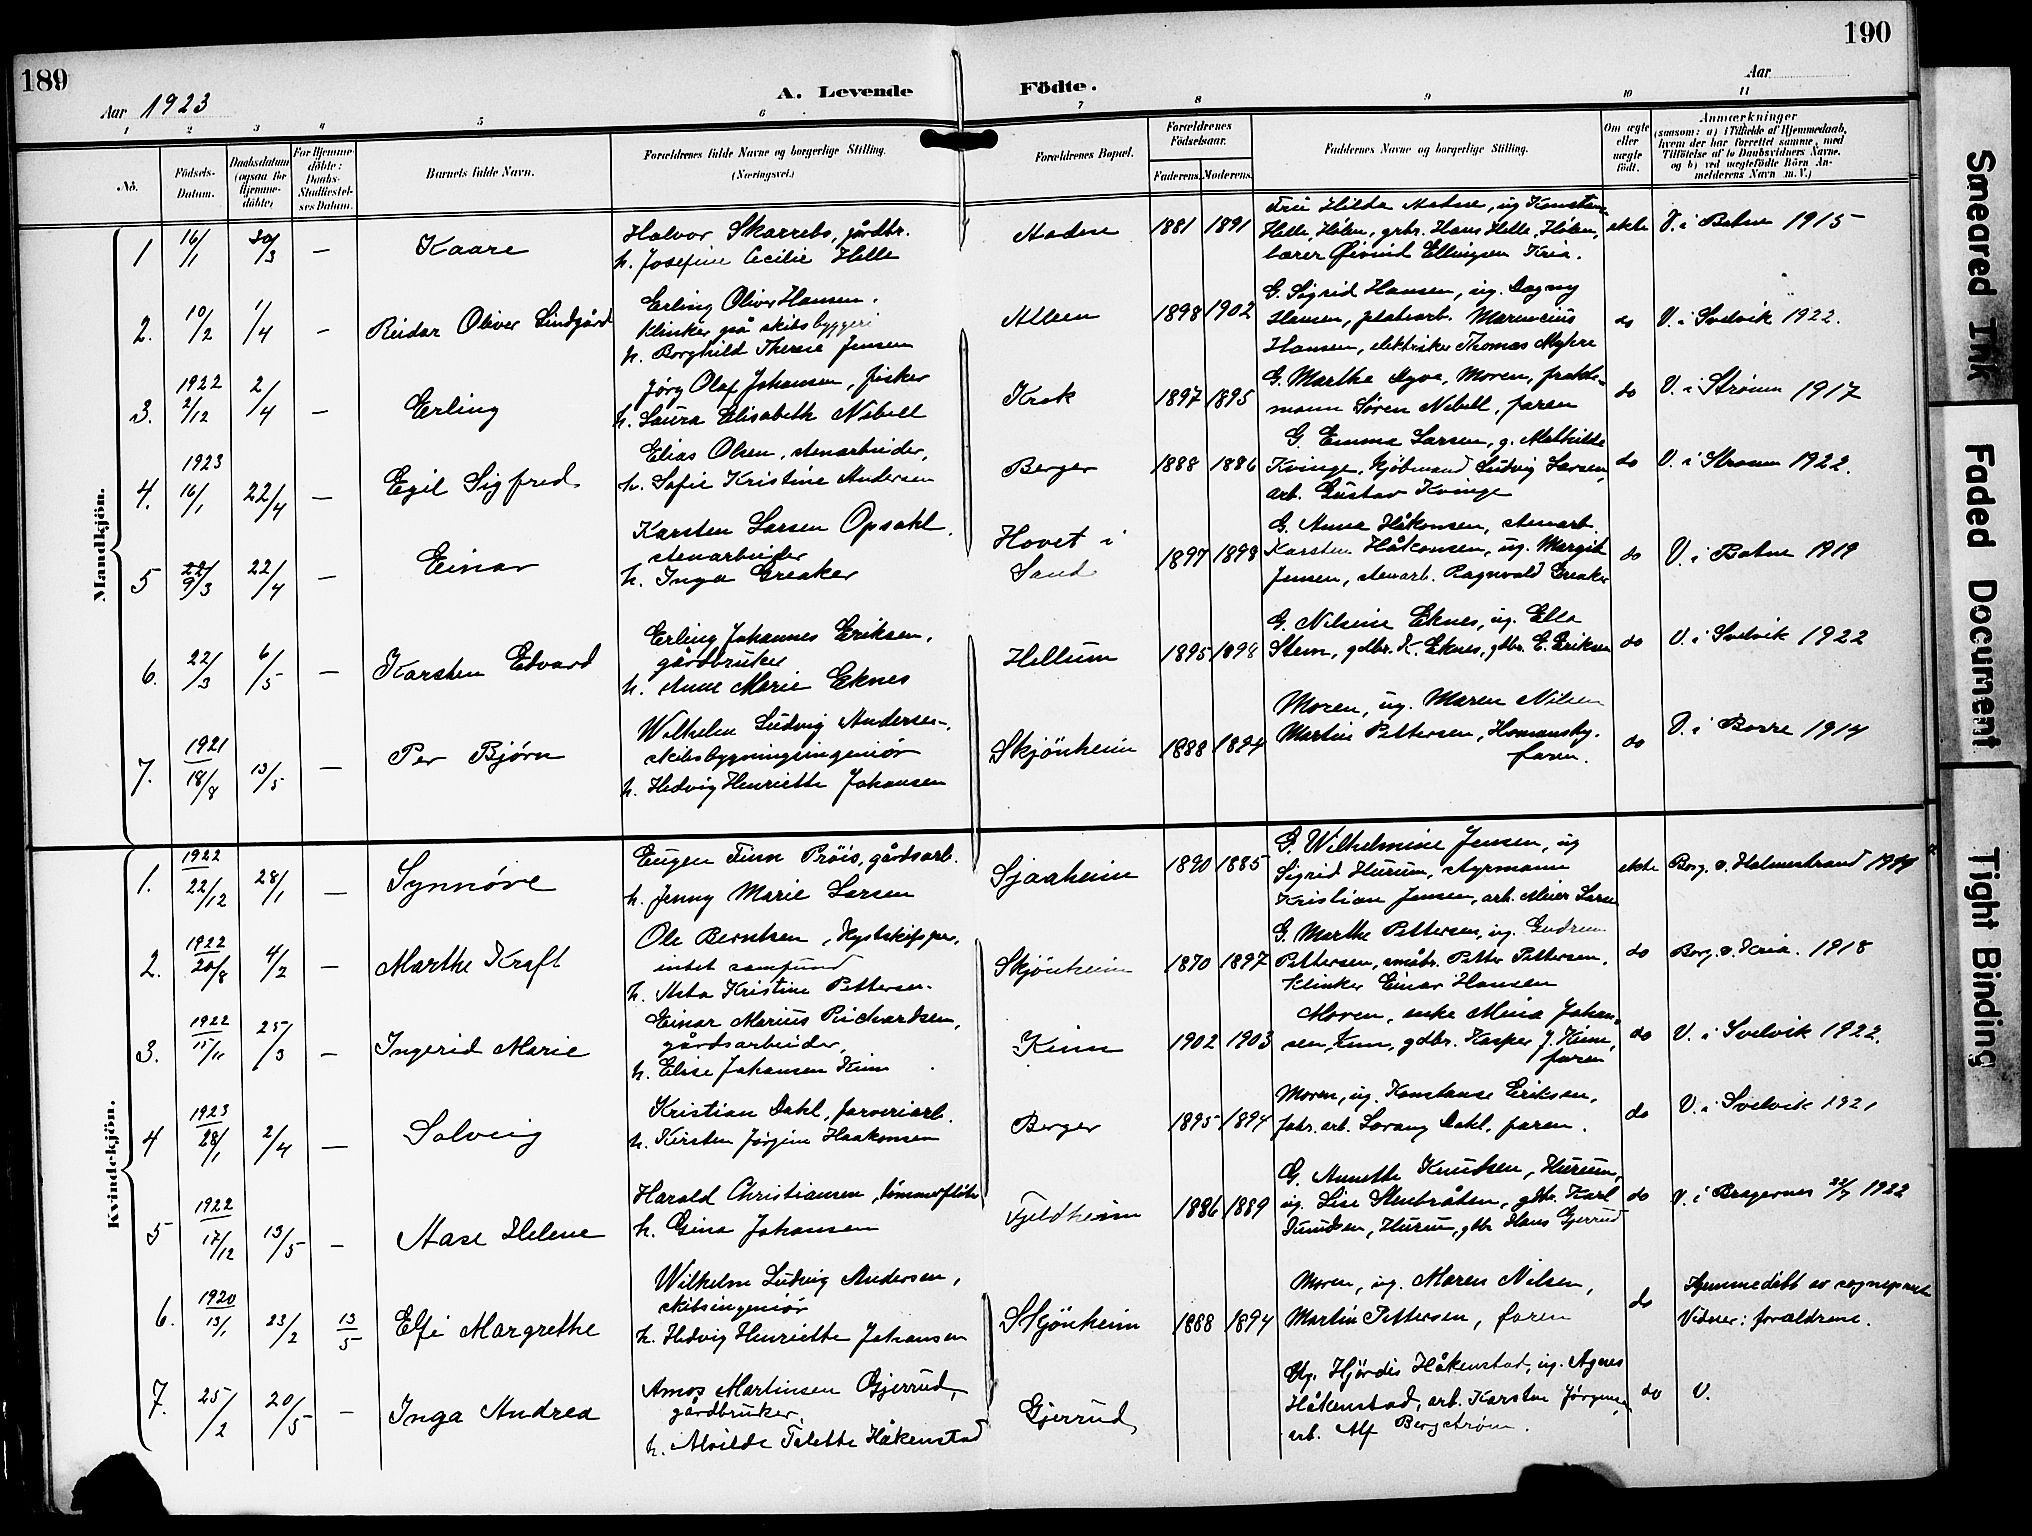 189
190
Aar 1923
A. Levende
Födte.
Aar
1 2 3 4 5 6 7 8 9 10 11
No.
Födsels-
Datum.
Daabsdatum
(ogsaa for
Hjemme-
döbte)
For Hjemme-
döbte:
Daabs-
Stadfæstel-
ses Datum.
Barnets fulde Navn.
Forældrenes fulde Navne og borgerlige Stilling.
(Næringsvei.)
Forældrenes Bopæl.
Forældrenes
Födselsaar.
Faderens. Moderens.
Faddernes Navne og borgerlige Stilling.
Om ægte
eller
uægte
född.
Anmærkninger
(saasom: a) i Tilfælde af Hjemmedaab,
hvem der har forrettet samme, med
Tilföielse af to Daabsvidners Navne,
og b) ved uægtefödte Börn An-
melderens Navn m. V.)
Mandkjön.
1 16/1 30/3 — Kaare
Halvor Skarrebo, gårdbr.
h. Josefine Cecilie Helle
Aadne 1881 1891
Fru Hilda Aadne, ug Konstanse
Helle, Hölen, grbr. Hans Helle, Hölen,
lærer Øivind Ellingsen Kria.
ekte V. i Botne 1915
2. 10/2 1/4 — Reidar Oliver Lindgård
Erling Oliver Hansen.
klinker på skibsbyggeri
h. Borghild Therese Jensen
1898 1902
G. Sigrid Hansen, ug. Dagny
Hansen, platearb. Marencius
Hansen, elektriker Thomas Myhre
do V. i Svelvik 1922.
3. 1922 2/12 2/4 — Erling
Jörg Olaf Johansen, fisker
h. Laura Elisabeth Nebell
Krok 1897 1895
G. Marthe Dyva, Moren, frakte-
mann Søren Nebell, faren
do V. i Strömm 1917
4. 1923 16/1 22/4 — Egil Sigfred
Elias Olsen, stenarbeider,
h. Sofie Kristine Andersen
Berger 1888 1886
G. Emma Larsen, g. Mathilde
Kvinge, Kjöbmand Ludvig Larsen,
arb. Gustav Kvinge
do V. i Strömm 1922.
5 9/3 22/4 — Einar
Karsten Larsen Opsahl.
stenarbeider
h. Inga Greaker
Hovet i
Sand
1897 1898
G. Anna Håkonsen, stenarb.
Karsten Håkonsen, ug. Margit
Jensen, stenarb. Ragnvald Greaker
do V. i Botne 1919
6. 22/3 6/5 — Karsten Edvard
Erling Johannes Eriksen,
gårdbruker
h. Anne Marie Eknes
Hellum 1895 1898
G. Nilsine Eknes, ug. Ella
Strm, gdbr. K. Eknes, gdbr. E. Eriksen
do V. i Svelvik 1922
7. 1921 18/8 13/5 — Per Bjørn
Wilhelm Ludvig Andersen,
skibsbygningsingeniör
h. Hedvig Henriette Johansen
Skjönheim 1888 1894
Moren, ug. Maren Nilsen
Martin Pettersen, Homansby.
faren.
do V. i Borre 1914
Kvindekjön.
1. 1922 22/12 28/1 — Synnöve
Eugen Finn Pröis, gårdsarb.
h. Jenny Marie Larsen
Sjaaheim 1890 1885
G. Wilhelmine Jensen, ug
Sigrid Hurum, styrmann
Kristian Jensen, arb. Meier Larsen
ekte Borg. v. Holmestrand
2. 1922 20/8 4/2 — Marthe Kraft
Ole Berntsen, Kystskipper,
intet samfund
h. Asta Kristine Pettersen.
Skjönheim 1870 1897
G. Marthe Pettersen, ug. Gudrun
Pettersen, småbr. Petter Pettersen,
klinker Einar Hansen
do Borg. v. Kria. 1918
3. 1922 15/11 25/3 — Ingerid Marie
Einar Marius Richardsen,
gårdsarbeider,
h. Elise Johansen Kinn
Kinn 1902 1903
Moren, enke Mina Johan-
sen, Kinn, gdbr. Kasper J. Kinn,
faren
do V. i Svelvik 1922.
4 1923 28/1 2/4 — Solveig
Kristian Dahl, farveriarb.
h. Kirsten Jörgine Haakonsen
Berger 1895 1894
Moren, ug. Konstanse Eriksen,
fabr. arb. Lorang Dahl, faren.
do V. i Svelvik 1921
5 1922 17/12 13/5 — Aase Helene
Harald Christiansen, tömmerflöter
h. Gina Johansen
Fjeldheim 1886 1889
G. Annette Knutsen, Hurum,
ug. Lise Stenbråten, gdbr. Karl
Knudsen, Hurum, gdbr Hans Gjerrud
do V. i Bragernes 22/7 1922
6. 1920 13/1 23/2 13/5 Elfi Margrethe
Wilhelm Ludvig Andersen,
skibsingeniör
h. Hedvig Henriette Johansen
Skjönheim 1888 1894
Moren, ug. Maren Nilsen,
Martin Pettersen, faren
do Hjemmedöbt av sogneprest
Vidner: forældrene.
7. 25/2 20/5 — Inga Andrea
Amos Martinsen Gjerrud,
gårdbruker.
h. Alvilde Talette Håkenstad
Gjerrud
Ug. Hjördis Håkenstad, ug. Agnes
Håkenstad, arb. Karsten Jörgensen,
arb. Alf Bergström.
do V.
Smeared Ink
Faded Document
Tight Binding